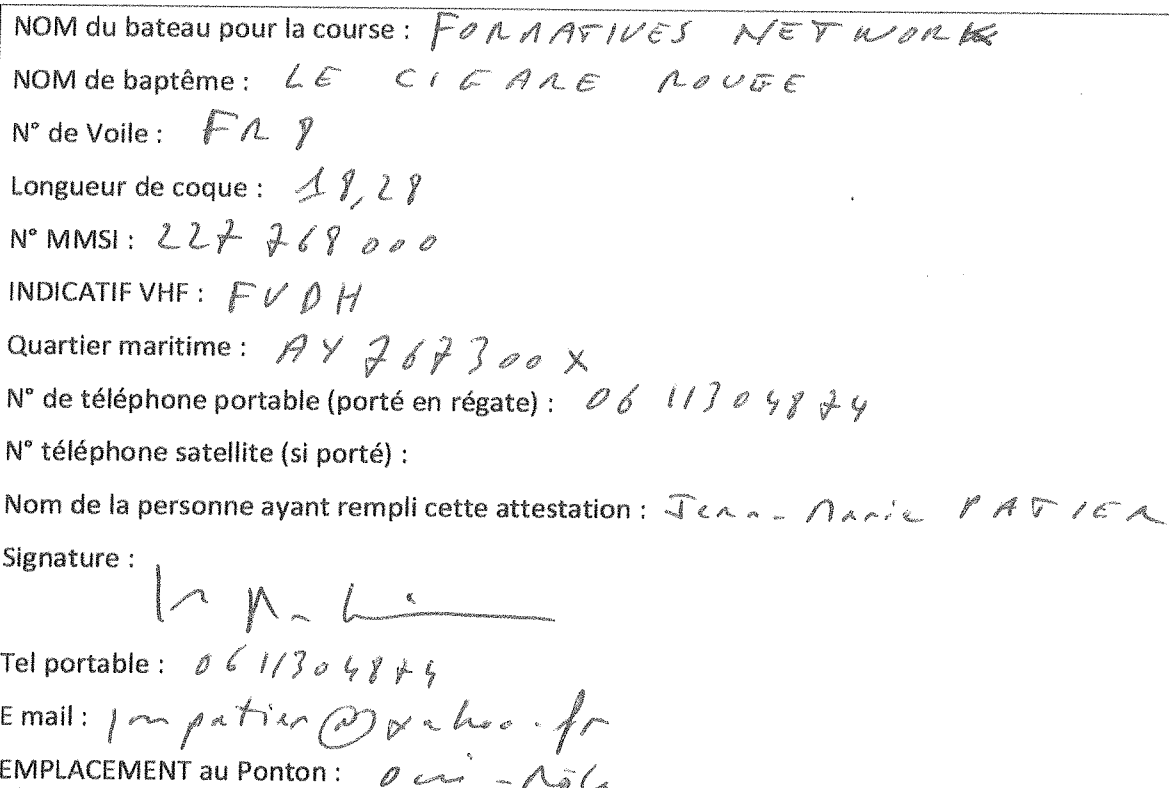 NOM du bateau pour la course : FORMATIVES NETWORK
NOM de baptême : LE CIGARE ROUGE
N° de Voile : FR 8
Longueur de coque : 18,28
N° MMSI : 227 768 000
INDICATIF VHF : FVDH
Quartier maritime : AY 767300 X
N° de téléphone portable (porté en régate) : 06 11304874
N° téléphone satellite (si porté) :
Nom de la personne ayant rempli cette attestation : Jean-Marie PATIER
Signature :
Tel portable : 0611304874
E mail : jmpatier@yahoo.fr
EMPLACEMENT au Ponton : oui - Môle